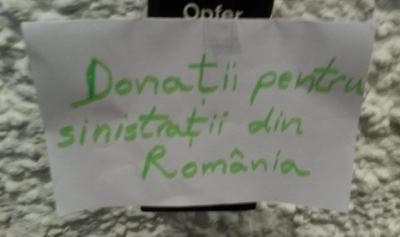 Opfer
Donații pentru
sinistrații din
România